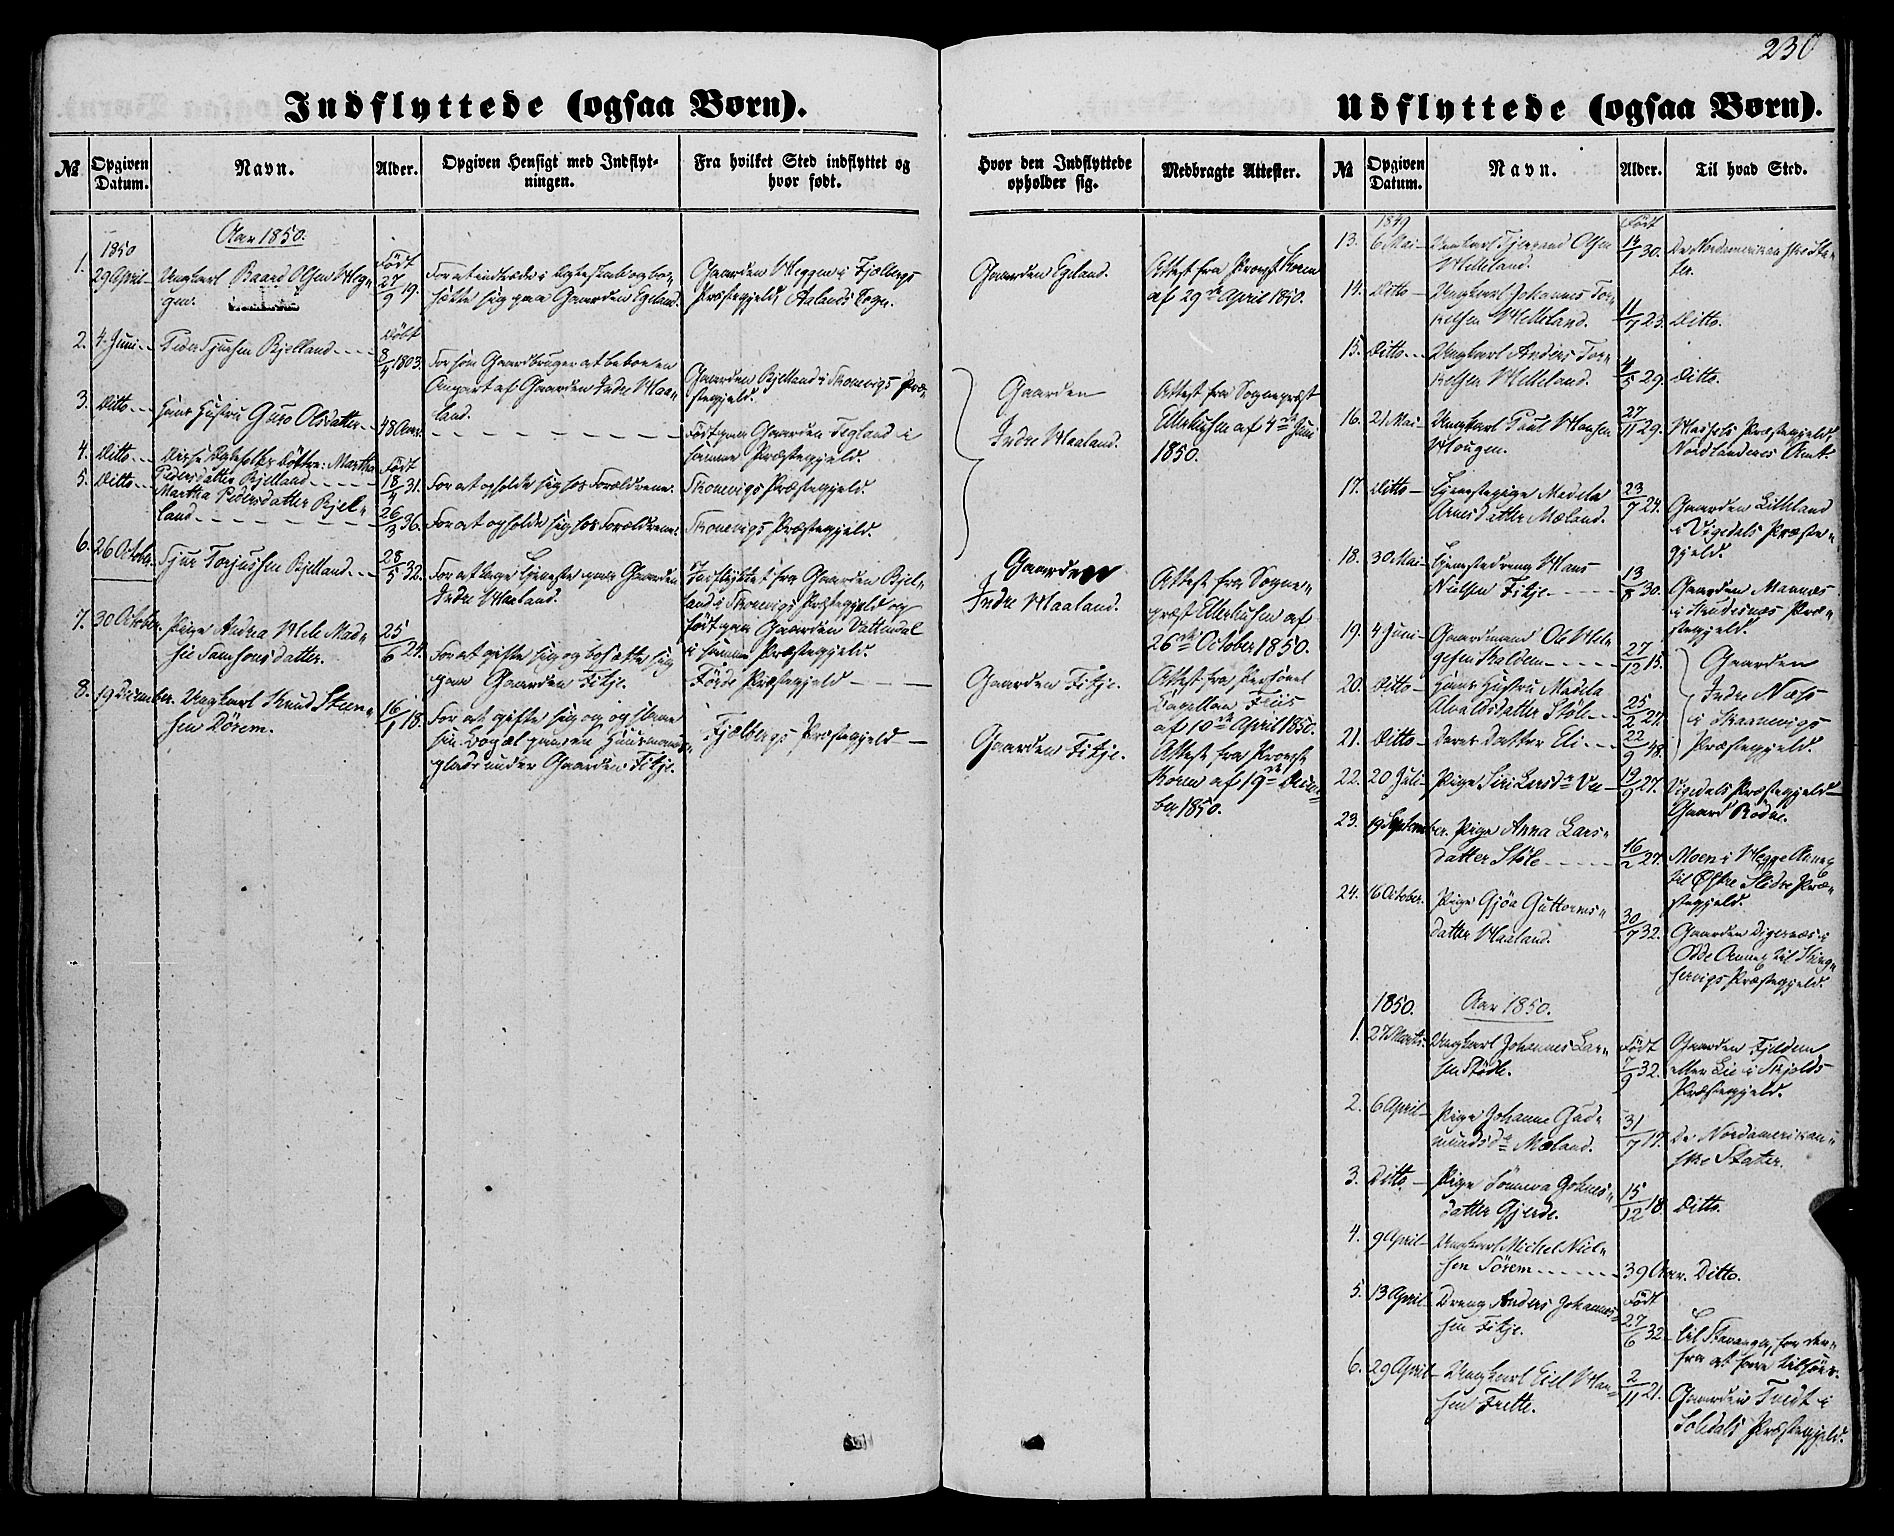 230
Indflyttede (ogsaa Børn).
№
Opgiven Datum.
Navn.
Alder.
Opgiven Hensigt med Indflyt-
ningen.
Fra hvilket Sted indflyttet og
hvor født.
Hvor den Indflyttede
opholder sig.
Medbragte Attester.
Aar 1850.
1850 Født
1. 29 April Ungkarl Baard Olsen Heg-
gen. 27/9 19.
For at indtræde i Ægtestand og bo-
sætte sig paa Gaarden Egeland.
Gaarden Heggen i Fjelbergs
Præstegjeld, Aalands Sogn.
Gaarden Egeland.
Attest fra Provst Koren
af 29de April 1850.
Døbt
2. 4 Juni Peder Bjelland 8/4 1803.
For som Gaardbruger at beboe en
Anpart af Gaarden Indre Haa-
land.
Gaarden Bjelland i Skonevigs Præ-
stegjeld.
Gaarden
Indre Haaland.
Attest fra Sognepræst
Ellerhusen af 4de Juni
1850.
3. Ditto Hans Hustru Guro Olsdatter 48 Aar.
Født paa Gaarden Tegland i
samme Præstegjeld.
Født
4. Ditto Disse Ægtefolks Døttre: Martha
Pedersdatter Bjelland 18/4 31.
For at opholde sig hos Forældrene.
Skonevigs Præstegjeld.
5. Ditto Martha Pedersdatter Bjel-
land 26/3 36.
For at opholde sig hos Forældrene.
Skonevigs Præstegjeld.
6. 26 October. Sjur Torjussen Bjelland 28/5 32.
For at tage Tjeneste paa Gaarden
Indre Haaland.
Indflyttet fra Gaarden Bjel-
land i Skonevigs Præstegjeld og
født paa Gaarden Vattendal
i samme Præstegjeld.
Gaarden
Indre Haaland.
Attest fra Sogne-
præst Ellerhusen af
26de October 1850.
7. 30 October. Pige Andrea Hele Mad-
sie Samsonsdatter. 25/6 24.
For at gifte sig og bosætte sig
paa Gaarden Fitje.
Førde Præstegjeld
Gaarden Fitje.
Attest fra Personel
Capellan Friis
af 10de April 1850.
8. 19 December. Ungkarl Knud
sen Dørem. 16/1 18.
For at gifte sig og opslaae
sin Bopæl paa en Huusmands-
plads under Gaarden Fitje.
Fjelbergs Præstegjeld
Gaarden Fitje.
Attest fra Provst
Koren af 19de Decem-
ber 1850.
Udflyttede (ogsaa Børn).
№
Opgiven Datum.
Navn.
Alder.
Til hvad Sted.
1849 Født
13. 6 Mai Ungkarl Tjerand Olsen
Helleland. 14/7 30. De Nordamerikanske Sta-
ter.
14. Ditto Ungkarl Johannes Tor-
kelsen Helleland. 11/7 23. Ditto.
15. Ditto Ungkarl Anders Tor-
kelsen Helleland. 4/5 29. Ditto.
16. 21 Mai Ungkarl Paul Hansen
Hougen. 27/11 29. Præstegjeld,
Nordlandenes Amt.
17. Ditto Tjenestepige Madela
Arnesdatter Mæland. 23/7 24. Gaarden Litleland
i Vigedals Præste-
gjeld.
18. 30 Mai Tjenestedreng Hans
Nielsen Fitje 13/8 30. Gaarden Mannæs
i Sandesnæs Præ-
stegjeld.
19. 4 Juni Gaardmand Ole Hel-
gesen Halden 27/12 15. Gaarden
Indre Næss
i Skonevigs
Præstegjeld.
20. Ditto Hans Hustru Madela
datter Støle 25/2 27.
21. Ditto Deres Datter Eli 22/9 48.
22. 20 Juli Pige Siri Larsdr Ve 19/9 27. Vigedals Præstegjeld
Gaard Rødne.
23. 19 September. Pige Anna Lars-
datter Støle 16/2 27. Moen i Hegge Annex
til Østre Slidre Præ-
stegjeld.
24. 16 October. Pige Gjøa Guttorms-
datter Haaland. 30/7 32. Gaarden Digernæs i
Odde Annex til King-
servigs Præstegjeld.
1850. Aar 1850.
1. 27 Marts. Ungkarl Johannes Lar-
sen Støle. Født 7/9 32. Gaarden Fjelden
eller Lie i Skjolds
Præstegjeld.
2. 6 April Pige Johanne Gud-
mundsdr Mæland. 31/7 19. De Nordamerikan-
ske Stater.
3. Ditto Pige Sønneva Johnes-
datter Gjerde. 15/12 18. Ditto.
4. 9 April Ungkarl Michel Niel-
sen Sørem 39 Aar. Ditto.
5. 13 April Dreng Anders Johannes-
sen Fitje. Født 27/6 32. Til Stavanger, for der-
fra at fare tilsøes.
6. 29 April Ungkarl Eiel Han-
sen Frette. 2/11 21. Gaarden Tvedt i
Soledals Præstegjeld.